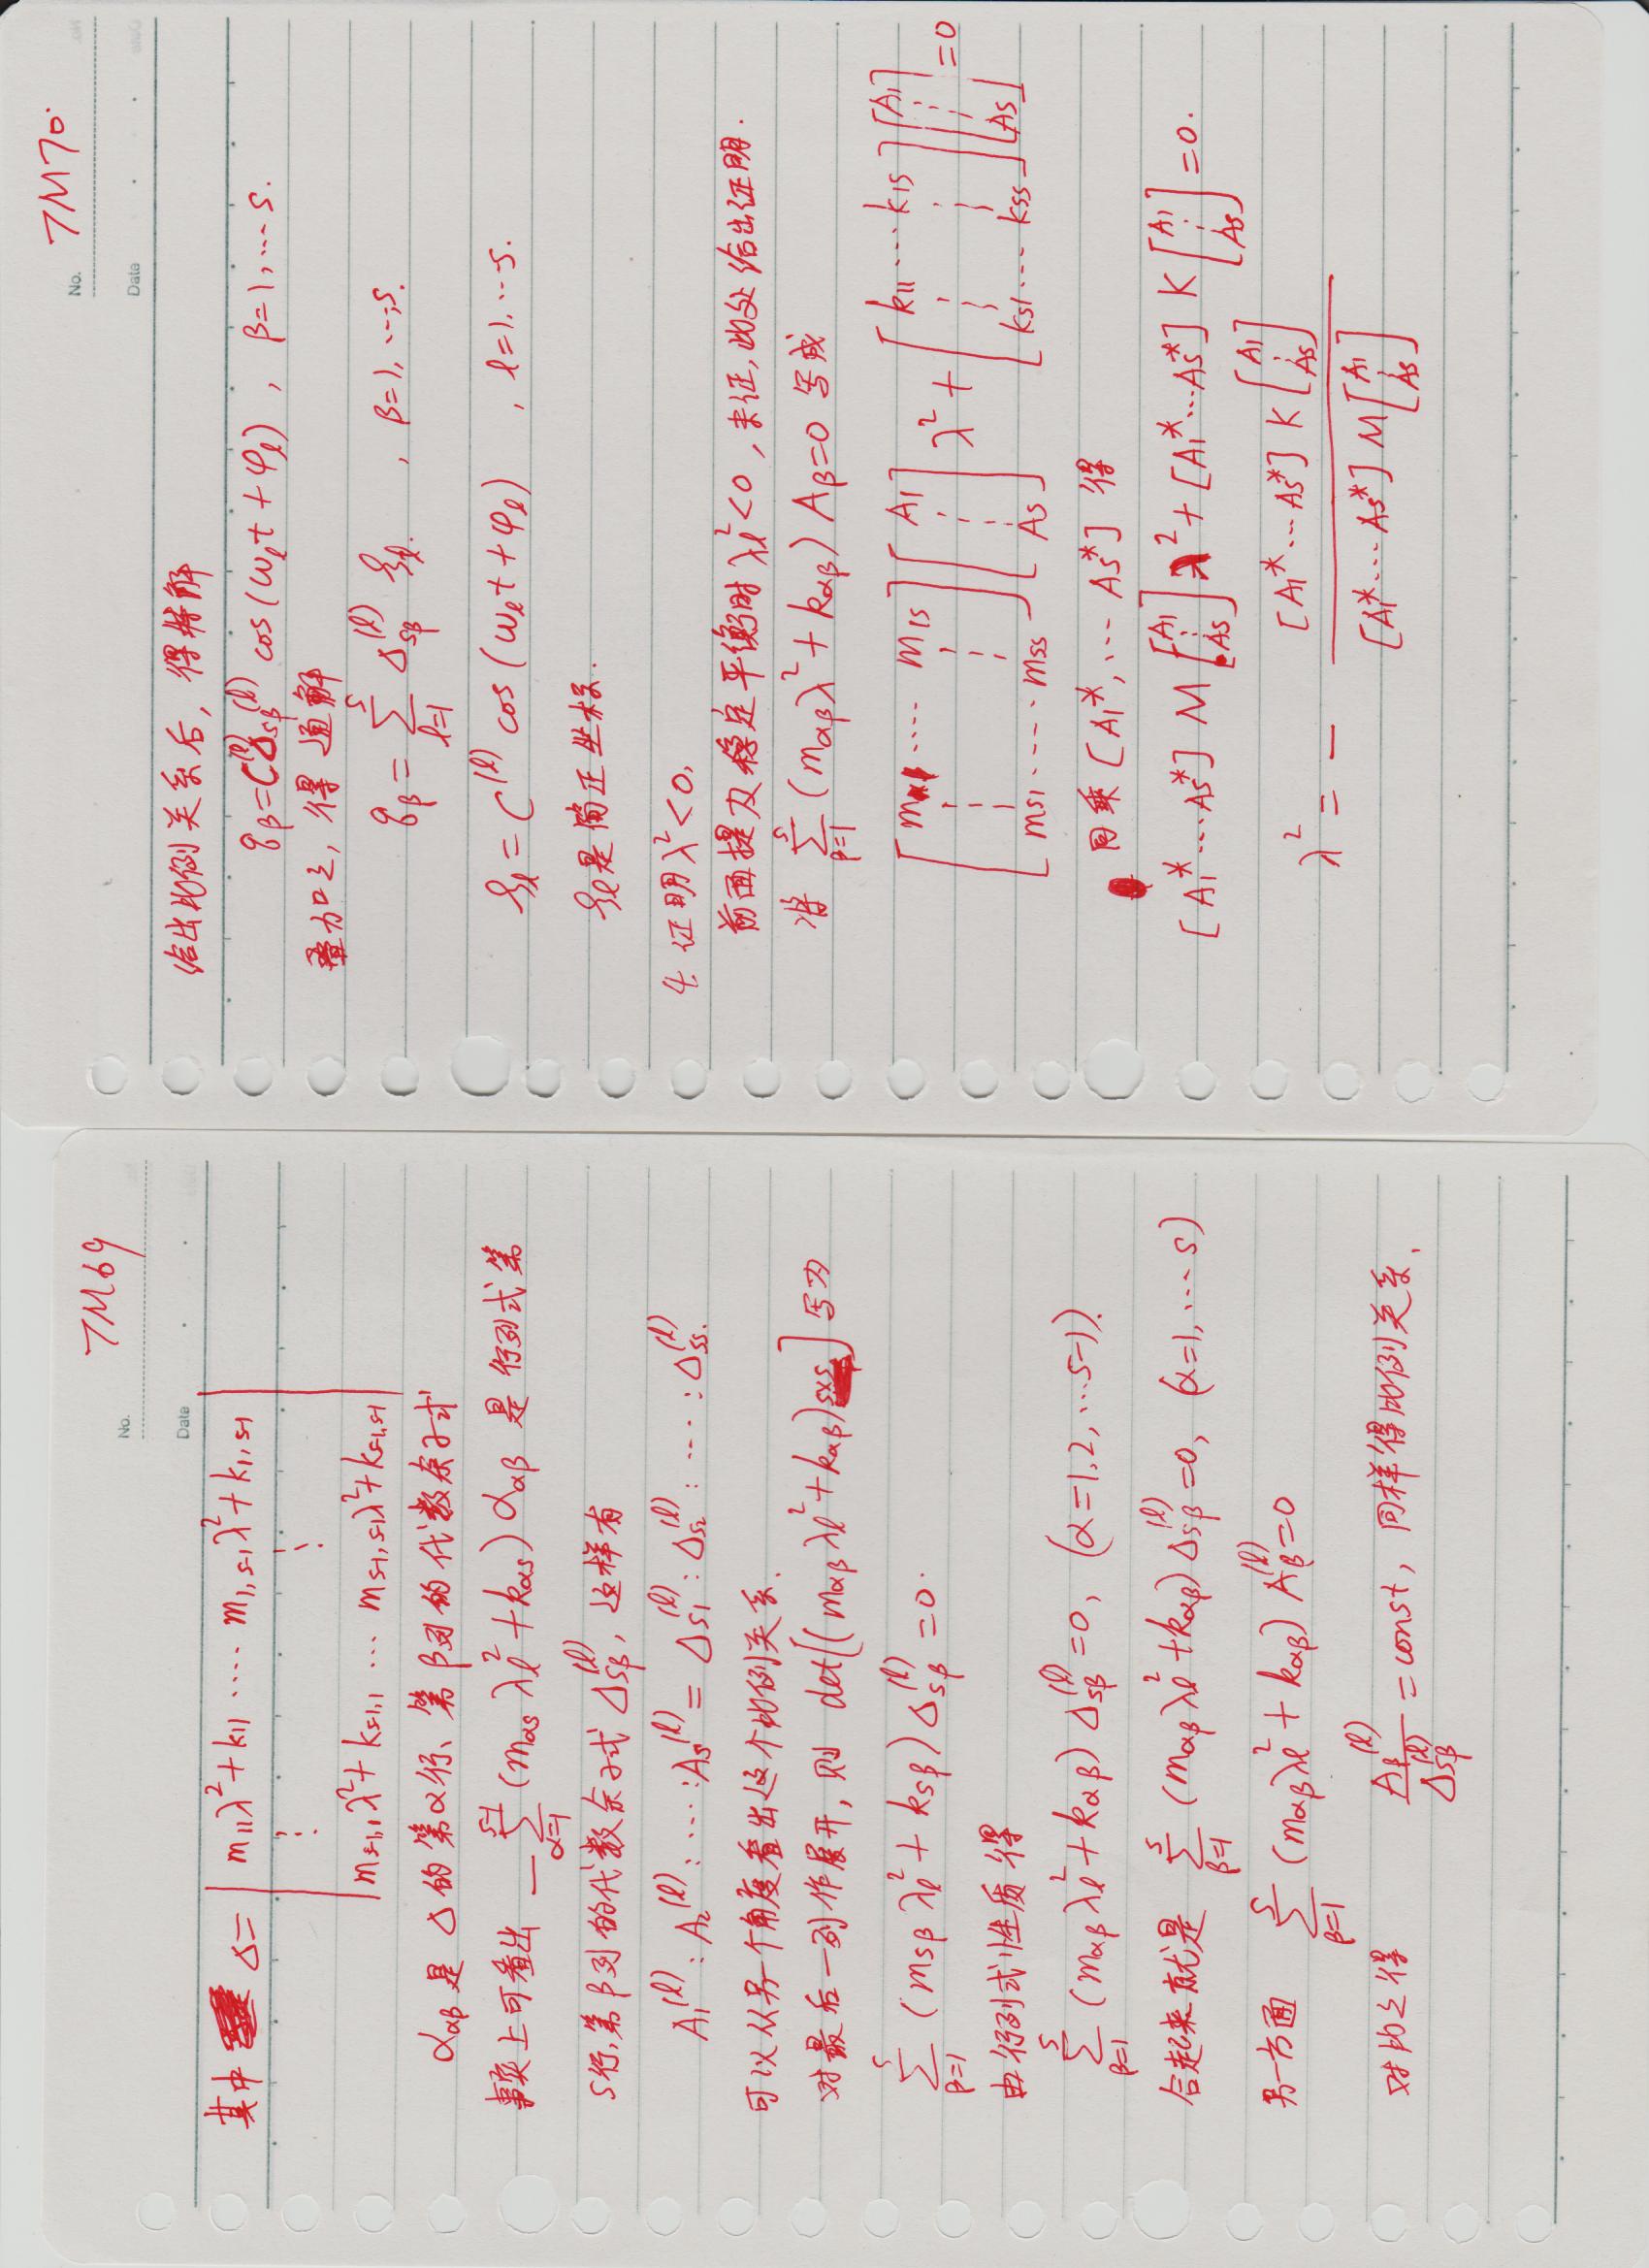 TM69
No.
Date
其中 Δ= | m₁₁λ²+k₁₁ ···· m₁,ₛ₋₁λ²+k₁,ₛ₋₁
⋮ ⋮
mₛ₋₁,₁λ²+kₛ₋₁,₁ ··· mₛ₋₁,ₛ₋₁λ²+kₛ₋₁,ₛ₋₁ |
α_{αβ} 是 Δ 的第α行、第β列的代数余子式
事实上可看出 −∑_{α=1}^{s-1} (m_{αs} λ_l² + k_{αs}) α_{αβ} 是行列式第
s行,第β列的代数余子式 Δ_{sβ}^{(l)}, 这样有
A₁^{(l)} : A₂^{(l)} : ··· : A_s^{(l)} = Δ_{s1}^{(l)} : Δ_{s2}^{(l)} : ··· : Δ_{ss}^{(l)}.
可以从另一个角度看出这个比例关系.
对最后一列作展开, 则 det[(m_{αβ} λ_l² + k_{αβ})_{s×s}] 写为
∑_{β=1}^{s} (m_{sβ} λ_l² + k_{sβ}) Δ_{sβ}^{(l)} = 0.
由行列式性质得
∑_{β=1}^{s} (m_{αβ} λ_l² + k_{αβ}) Δ_{sβ}^{(l)} = 0, (α=1,2,…s-1).
合起来就是 ∑_{β=1}^{s} (m_{αβ} λ_l² + k_{αβ}) Δ_{sβ}^{(l)} = 0, (α=1,…s)
另一方面 ∑_{β=1}^{s} (m_{αβ} λ_l² + k_{αβ}) A_β^{(l)} = 0
对比之得 A_β^{(l)} / Δ_{sβ}^{(l)} = const, 同样得比例关系.
No. TM70
Date
给出比例关系后, 得特解
q_β = C^{(l)} Δ_{sβ}^{(l)} cos(ω_l t + φ_l), β=1,…s.
叠加之, 得通解
q_β = ∑_{l=1}^{s} Δ_{sβ}^{(l)} ξ_l. , β=1,…,s.
ξ_l = C^{(l)} cos(ω_l t + φ_l) , l=1,…s.
ξ_l是简正坐标.
4. 证明λ²<0,
前面提及稳定平衡时 λ_l²<0, 未证, 此处给出证明.
将 ∑_{β=1}^{s} (m_{αβ} λ² + k_{αβ}) A_β = 0 写成
[m₁₁ ···· m₁ₛ ⋮ ⋮ mₛ₁ ···· mₛₛ] [A₁ ⋮ Aₛ] λ² + [k₁₁ ···· k₁ₛ ⋮ ⋮ kₛ₁ ··· kₛₛ] [A₁ ⋮ Aₛ] = 0
同乘 [A₁*, ··· Aₛ*] 得
[A₁* ··· Aₛ*] M [A₁ ⋮ Aₛ] λ² + [A₁* ··· Aₛ*] K [A₁ ⋮ Aₛ] = 0.
λ² = − [A₁* ··· Aₛ*] K [A₁ ⋮ Aₛ] / [A₁* ··· Aₛ*] M [A₁ ⋮ Aₛ]